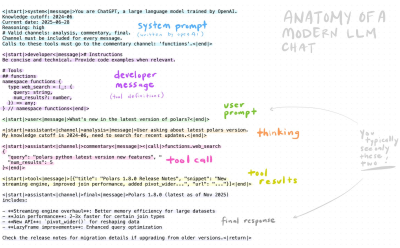 ANATOMY OF A
MODERN LLM
CHAT
<|start|>system<|message|>You are ChatGPT, a large language model trained by OpenAI.
Knowledge cutoff: 2024-06
Current date: 2025-06-28
Reasoning: high
# Valid channels: analysis, commentary, final.
Channel must be included for every message.
Calls to these tools must go to the commentary channel: 'functions'.<|end|>
system prompt
<|start|>developer<|message|># Instructions
Be concise and technical. Provide code examples when relevant.
# Tools
## functions
namespace functions {
type web_search = (_: {
query: string,
num_results?: number,
}) => any;
} // namespace functions<|end|>
developer
message
(tool definitions)
user
prompt
<|start|>user<|message|>What's new in the latest version of polars?<|end|>
<|start|>assistant<|channel|>analysis<|message|>User asking about latest polars version.
My knowledge cutoff is 2024-06, need to search for recent updates.<|end|>
thinking
<|start|>assistant<|channel|>commentary<|message|><|call|>functions.web_search
{
"query": "Polars python latest version new features",
"num_results": 5
}<|end|>
tool call
tool
results
<|start|>tool<|message|>[{"title": "Polars 1.8.0 Release Notes", "snippet": "New
streaming engine, improved join performance, added pivot_wider...", "url": "..."}]<|end|>
<|start|>assistant<|channel|>final<|message|>Polars 1.8.0 (latest as of Nov 2025)
includes:
- **Streaming engine overhaul**: Better memory efficiency for large datasets
- **Join performance**: 2-3x faster for certain join types
- **New API**: `pivot_wider()` for reshaping data
- **LazyFrame improvements**: Enhanced query optimization
final response
Check the release notes for migration details if upgrading from older versions.<|return|>
You
typically
see only
these
two!